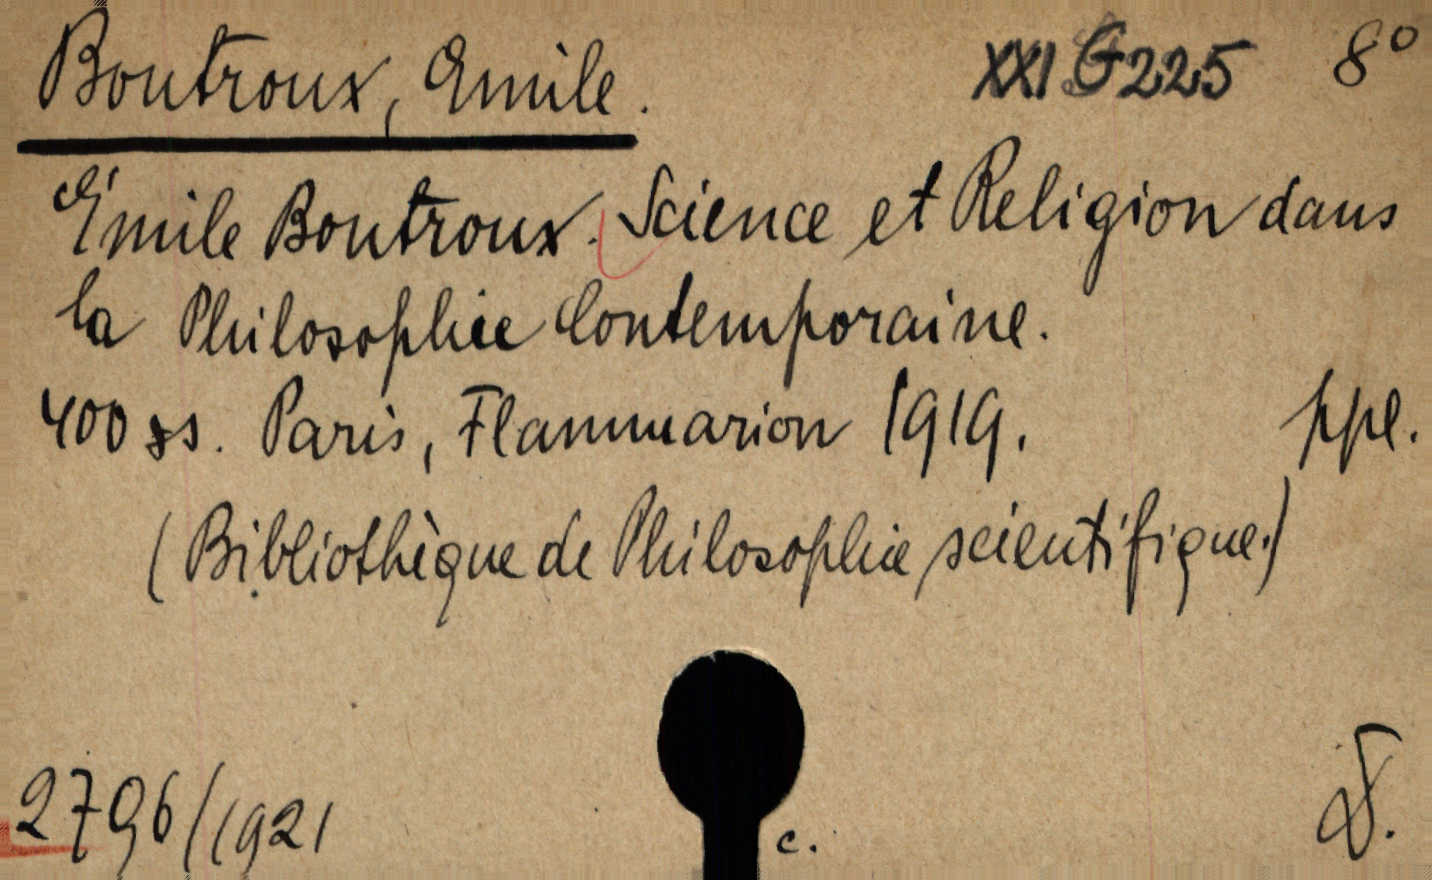 Boutroux, Emile. XXI G 225 8°
Émile Boutroux. Science et Religion dans
la Philosophie Contemporaine.
400 ss. Paris, Flammarion 1919. ppl.
(Bibliothèque de Philosophie scientifique.)
2796/1921 c.